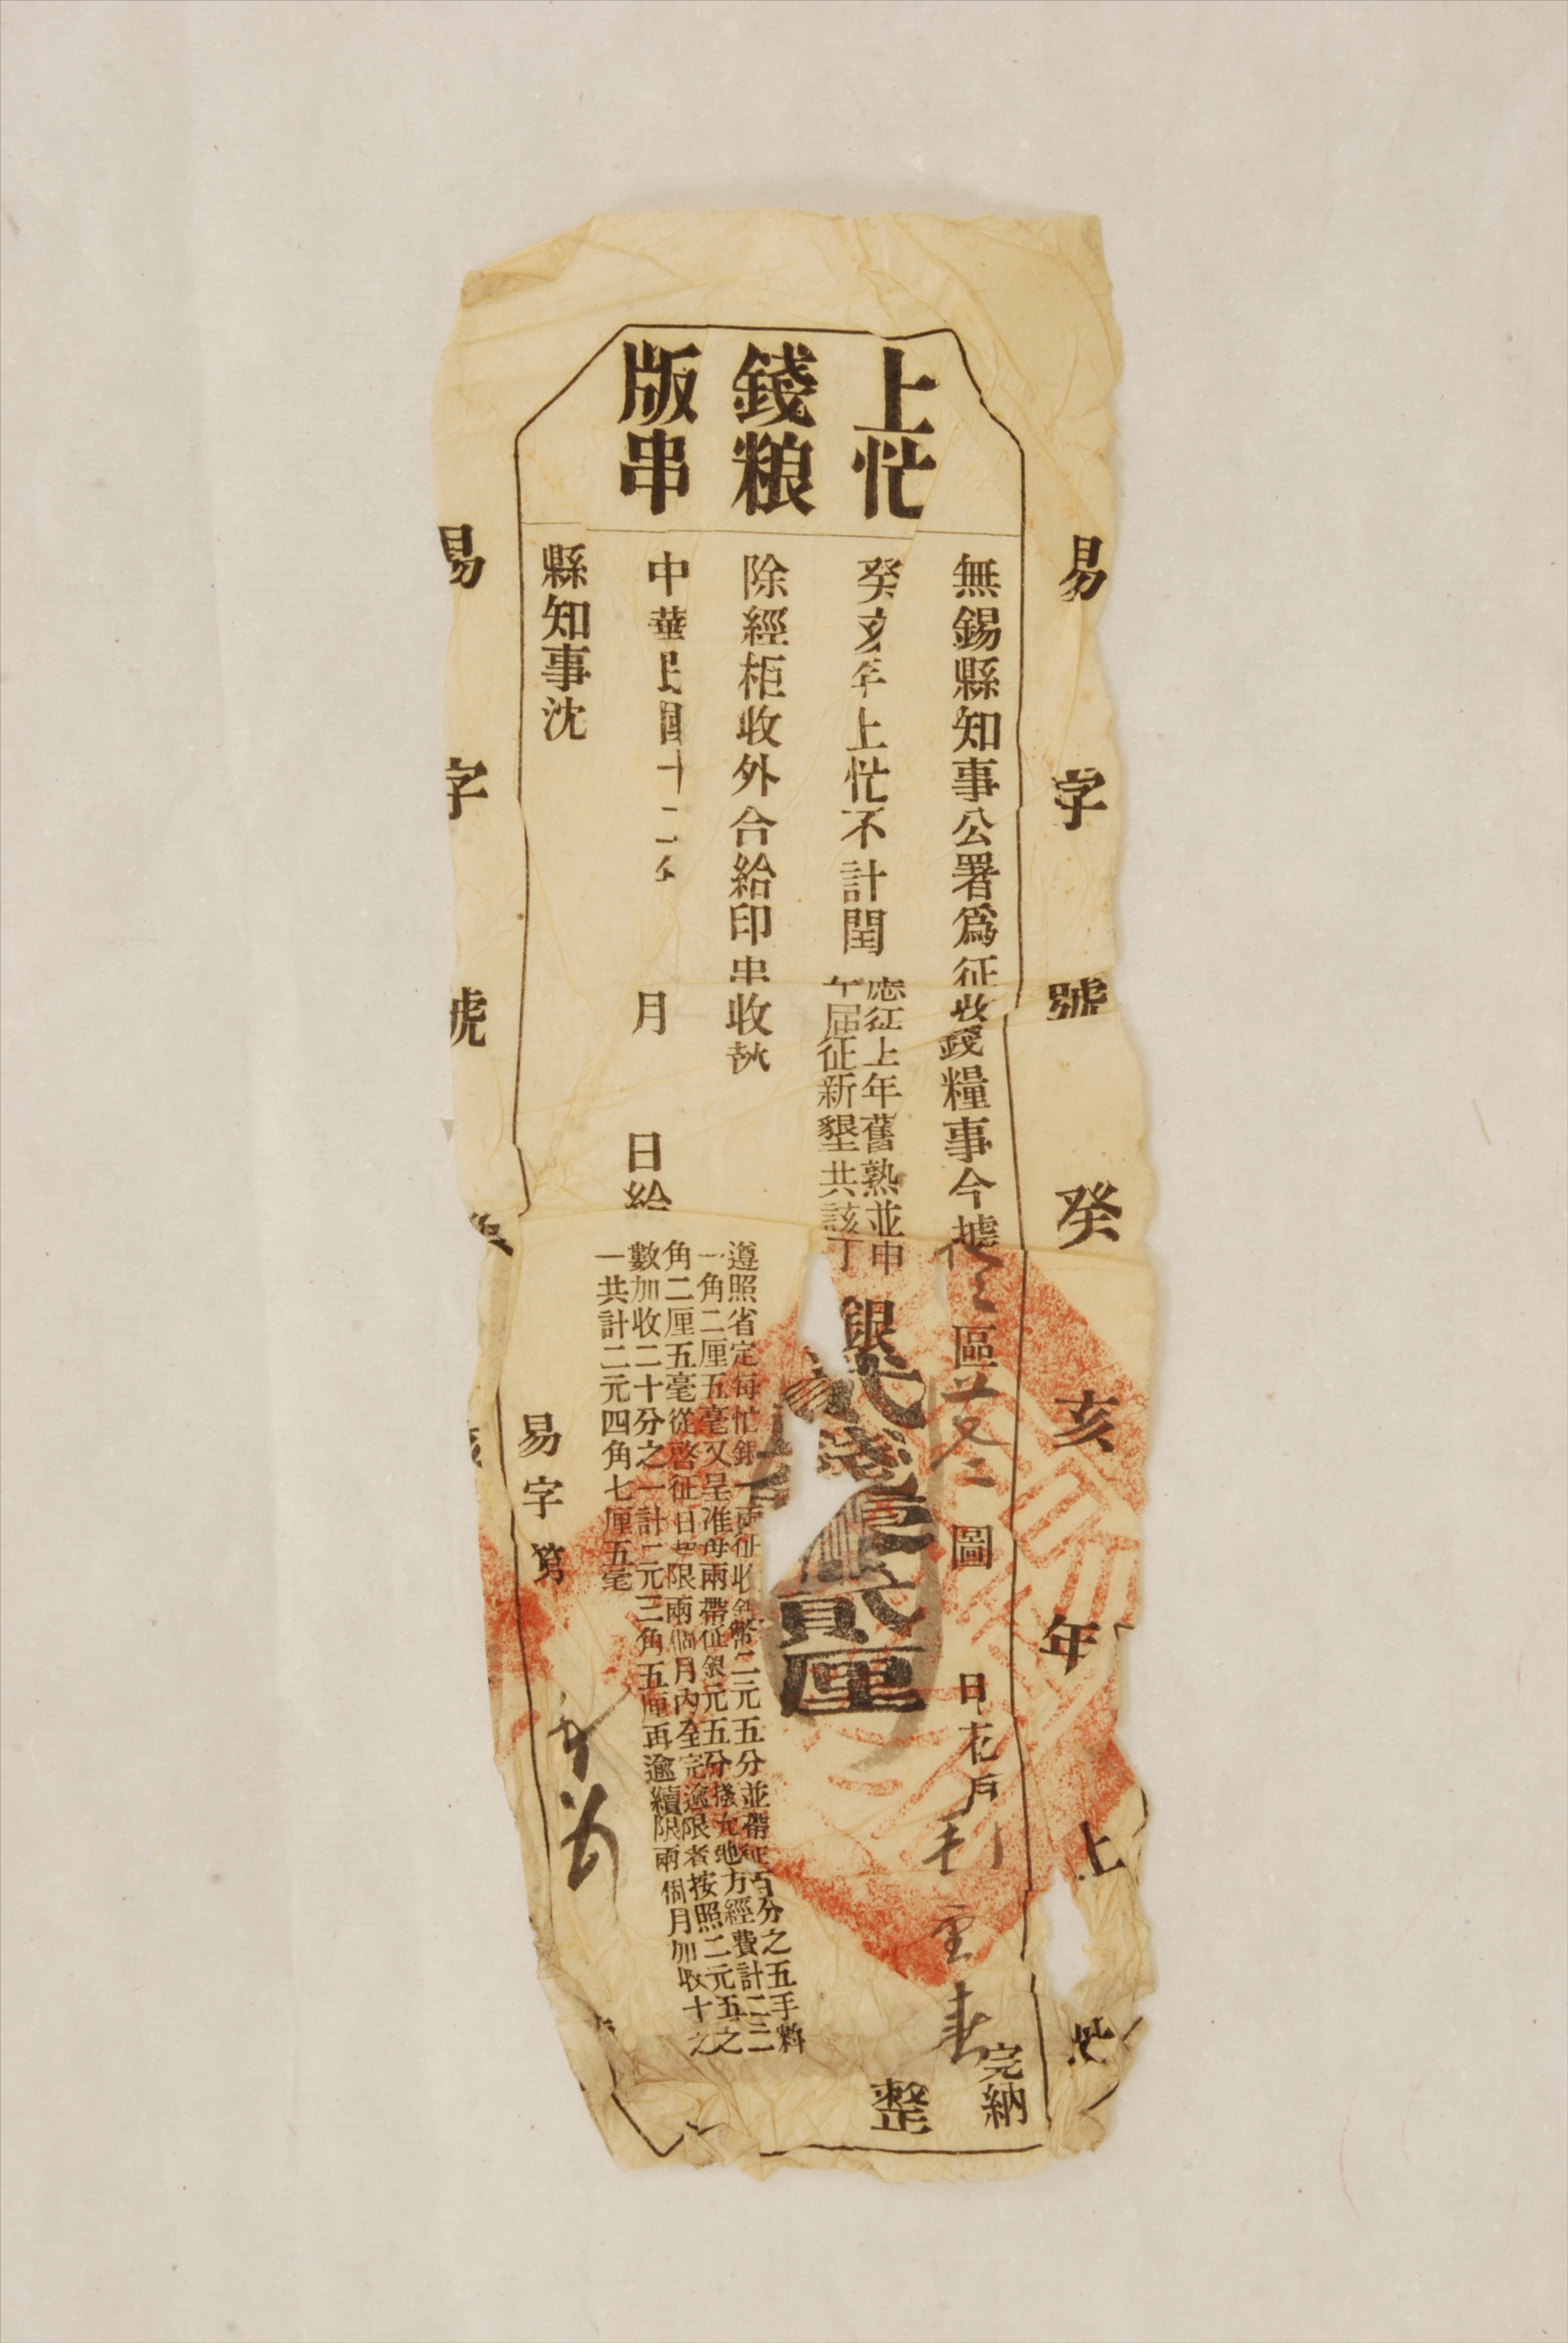 易字號 癸亥年上忙
上忙
錢粮
版串
無錫縣知事公署爲征收錢糧事今據
區
圖
花戶
完納
癸亥年上忙不計閏
應征上年舊熟並申
年屆征新墾共該丁
銀
貳厘
整
除經柜收外合給印串收執
中華民國十二年 月 日給
遵照省定每忙銀一兩征收銀幣二元五分並帶征百分之五手料
一角二厘五毫又呈准每兩帶征銀元五分撥充地方經費計二元二
角二厘五毫從啓征日起限兩個月內全完逾限者按照二元五之
數加收二十分之一計二元三角五厘再逾續限兩個月加收十之
一共計二元四角七厘五毫
縣知事沈
易字第
易字號